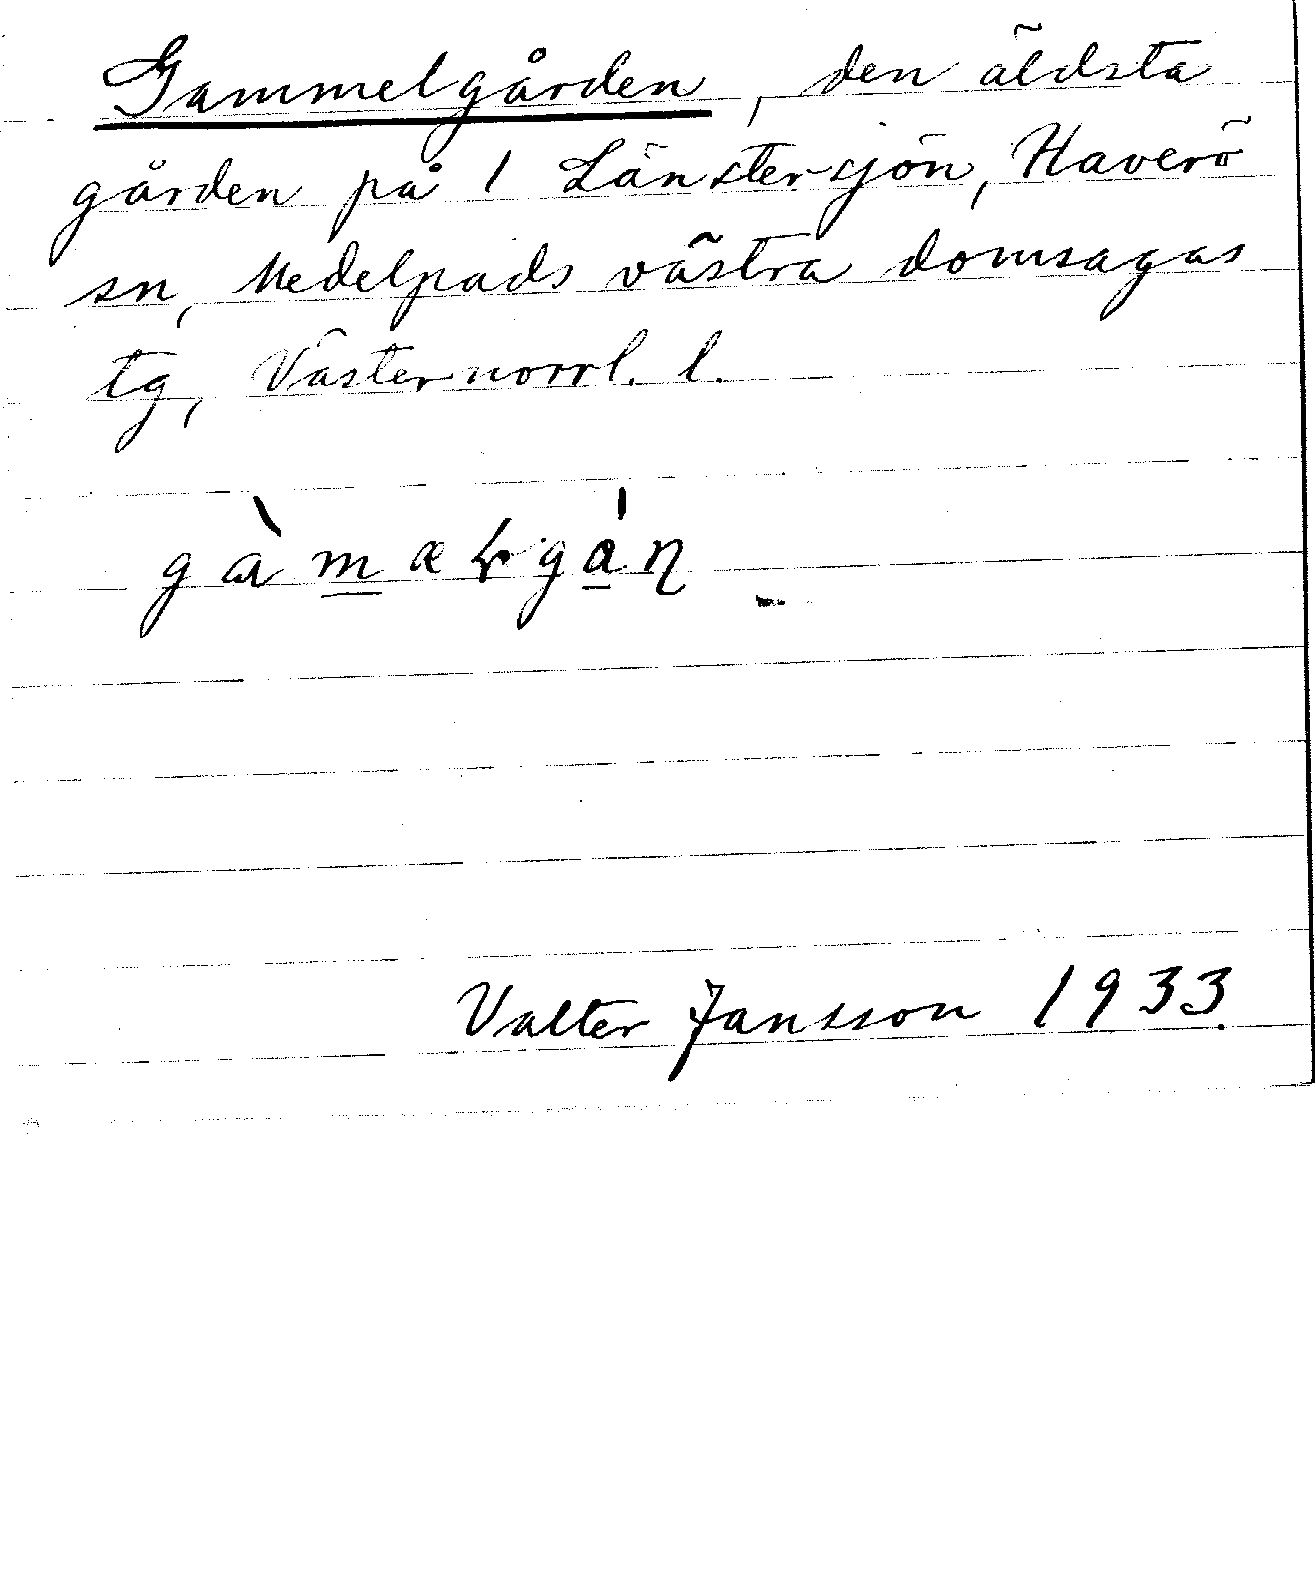 Gammelgården, den äldsta
gården på 1 Länstersjön, Haverö
sn, Medelpads västra domsagas
tg, Västernorrl. l.
Valter Jansson 1933.